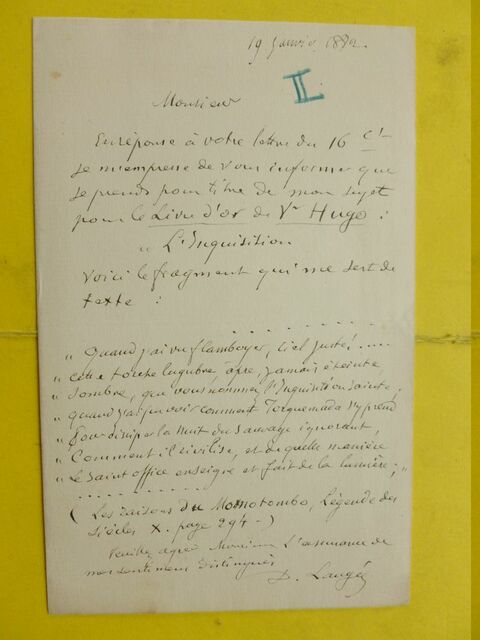 19 Janvier 1882.
II
Monsieur
En réponse à votre lettre du 16 ct
je m'empresse de vous informer que
je prends pour titre de mon sujet
pour le Livre d'or de Vr Hugo :
" L'Inquisition
Voici le fragment qui me sert de
texte :
. . . . . . . .
" Quand j'ai vu flamboyer, ciel juste ! ....
" cette torche lugubre, âpre, jamais éteinte,
" Sombre, que vous nommez l'Inquisition Sainte,
" quand j'ai pu voir comment Torquemada s'y prend
" Pour dissiper la nuit du sauvage ignorant,
" Comment il civilise, et de quelle manière
" Le Saint office enseigne et fait de la lumière ; "
. . . . . . .
( Les raisons du Momotombo, Légende des
Siècles X. page 294 - )
Veuillez agréer Monsieur L'assurance de
mes sentiments distingués
D. Laugée